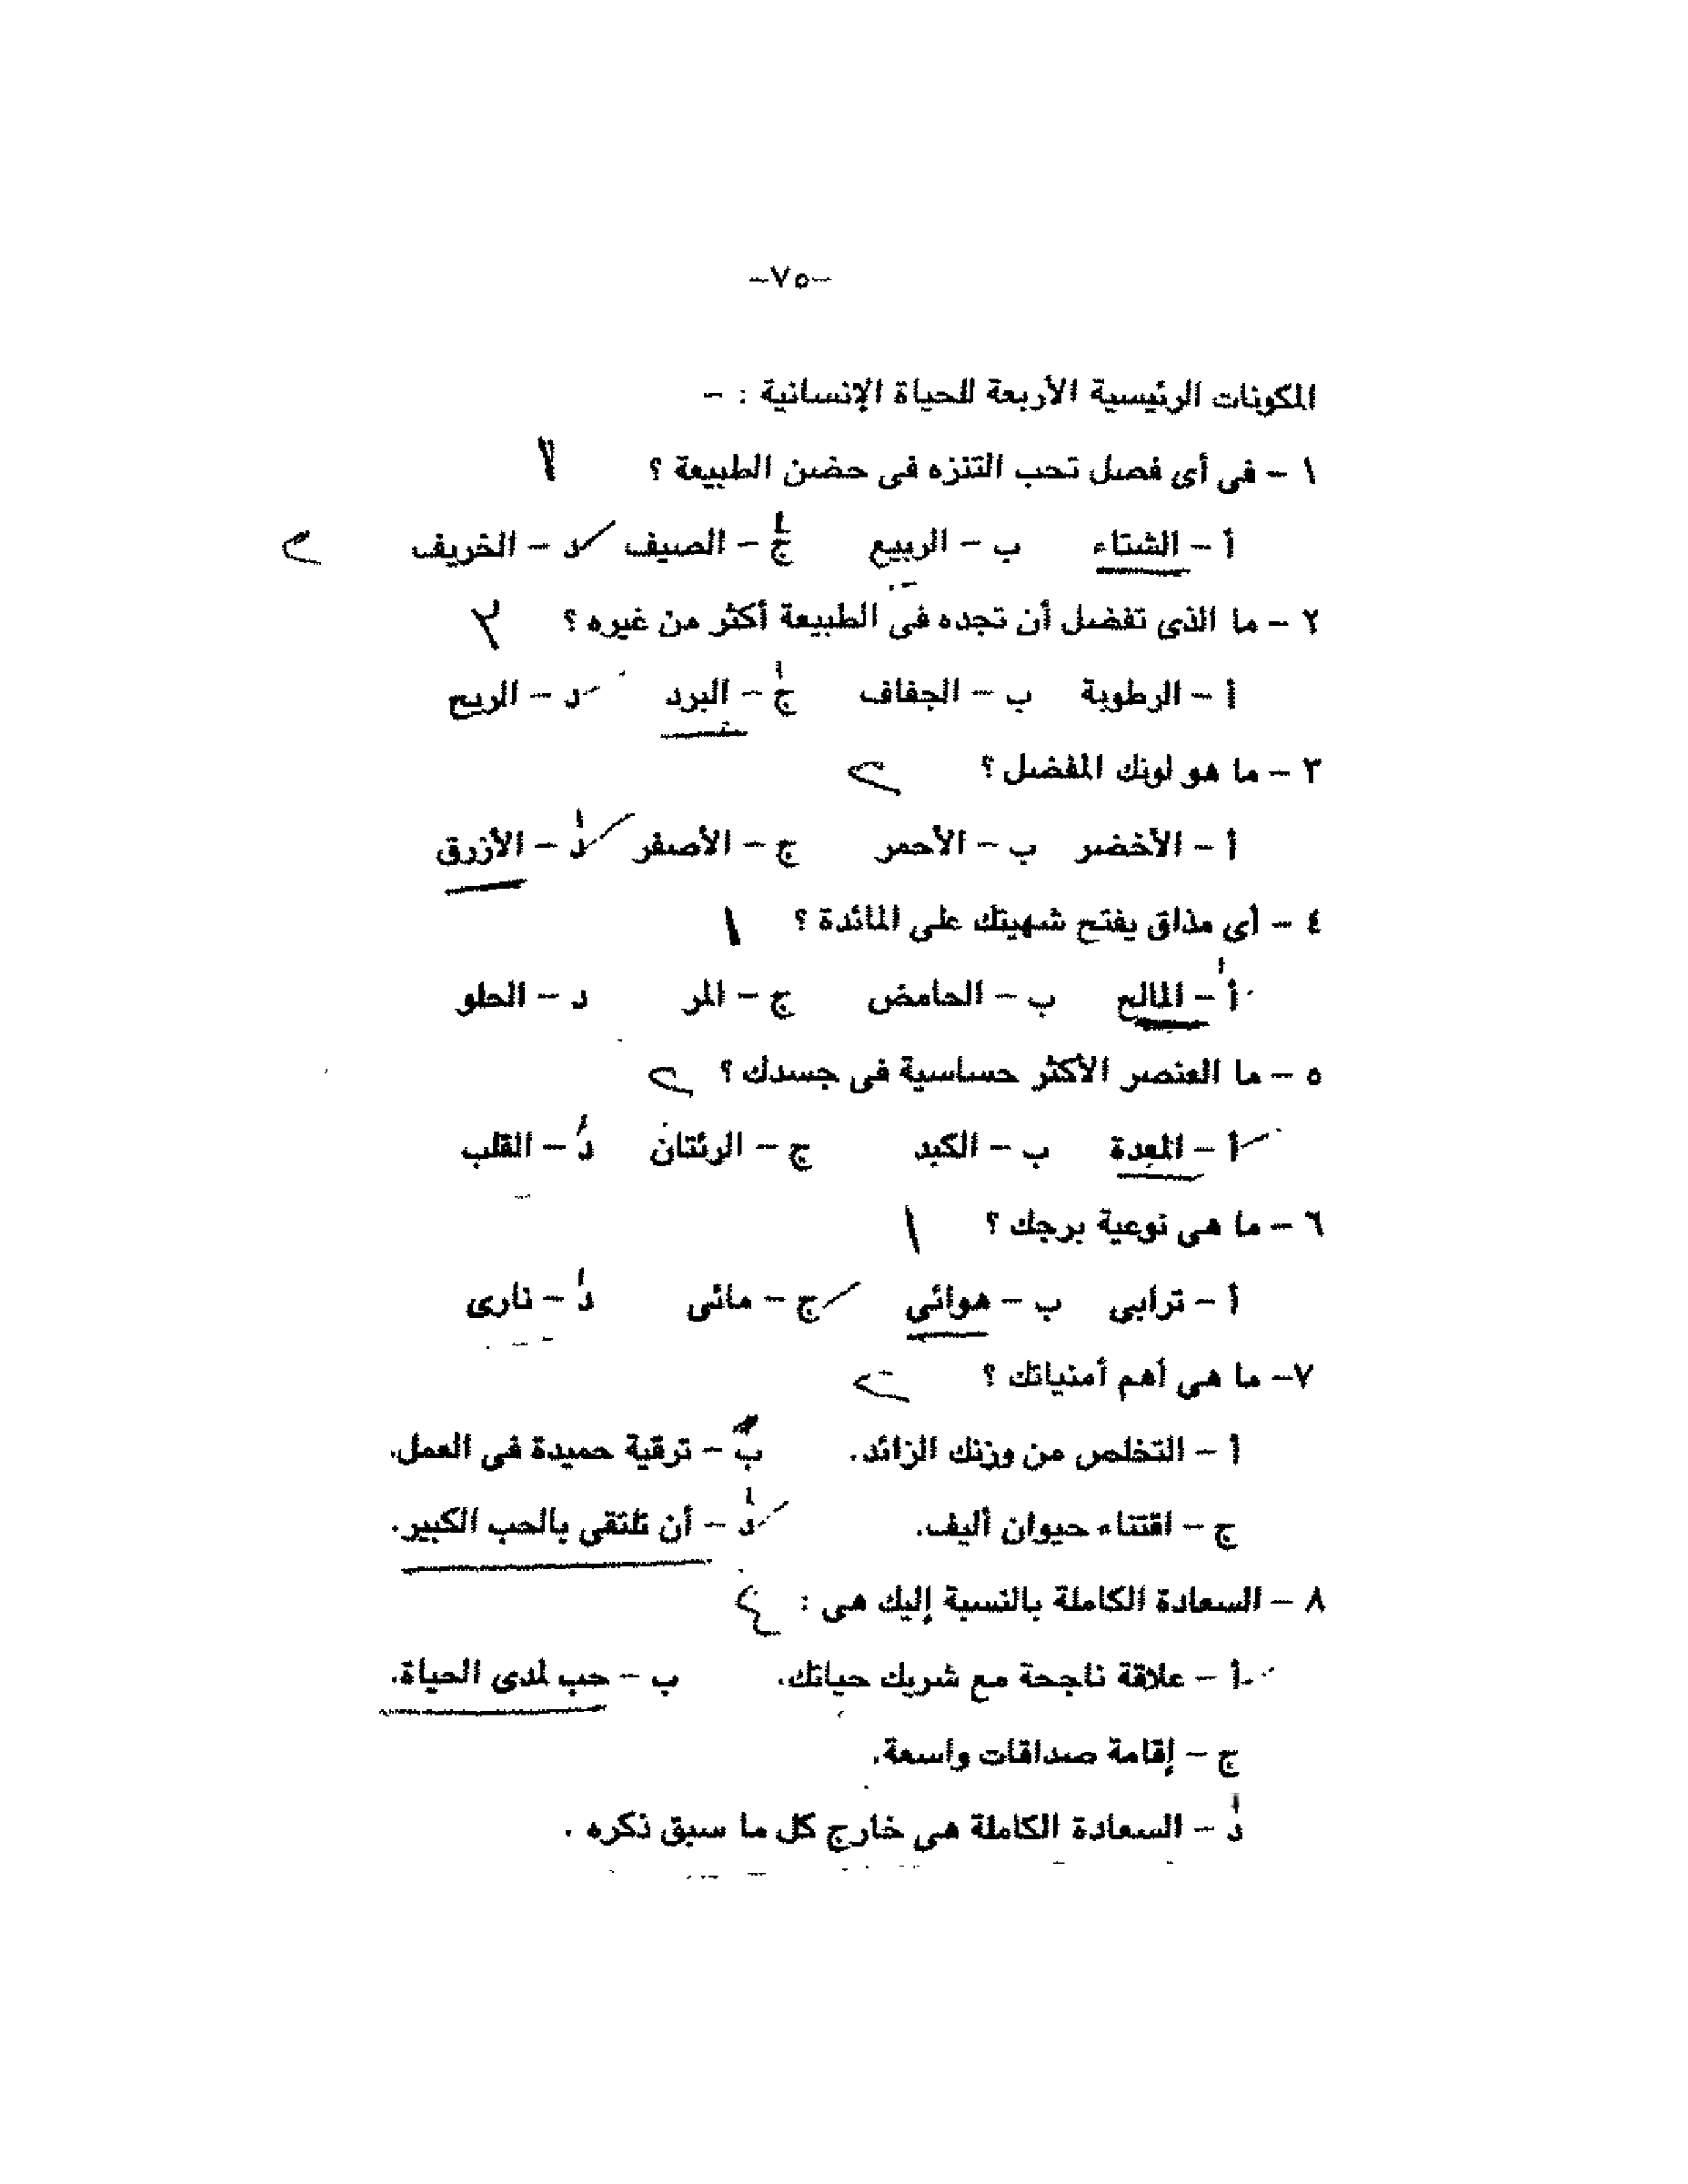 -٧٥-
المكونات الرئيسية الأربعة للحياة الإنسانية : -
١ - فى أى فصل تحب التنزه فى حضن الطبيعة ؟
أ - الشتاء ب - الربيع ج - الصيف د - الخريف
٢ - ما الذى تفضل أن تجده فى الطبيعة أكثر من غيره ؟
أ - الرطوبة ب - الجفاف ج - البرد د - الريح
٣ - ما هو لونك المفضل ؟
أ - الأخضر ب - الأحمر ج - الأصفر د - الأزرق
٤ - أى مذاق يفتح شهيتك على المائدة ؟
أ - المالح ب - الحامض ج - المر د - الحلو
٥ - ما العنصر الأكثر حساسية فى جسدك ؟
أ - المعدة ب - الكبد ج - الرئتان د - القلب
٦ - ما هى نوعية برجك ؟
أ - ترابى ب - هوائى ج - مائى د - نارى
٧- ما هى أهم أمنياتك ؟
أ - التخلص من وزنك الزائد. ب - ترقية حميدة فى العمل.
ج - اقتناء حيوان أليف. د - أن تلتقى بالحب الكبير.
٨ - السعادة الكاملة بالنسبة إليك هى :
أ - علاقة ناجحة مع شريك حياتك. ب - حب لمدى الحياة.
ج - إقامة صداقات واسعة.
د - السعادة الكاملة هى خارج كل ما سبق ذكره .